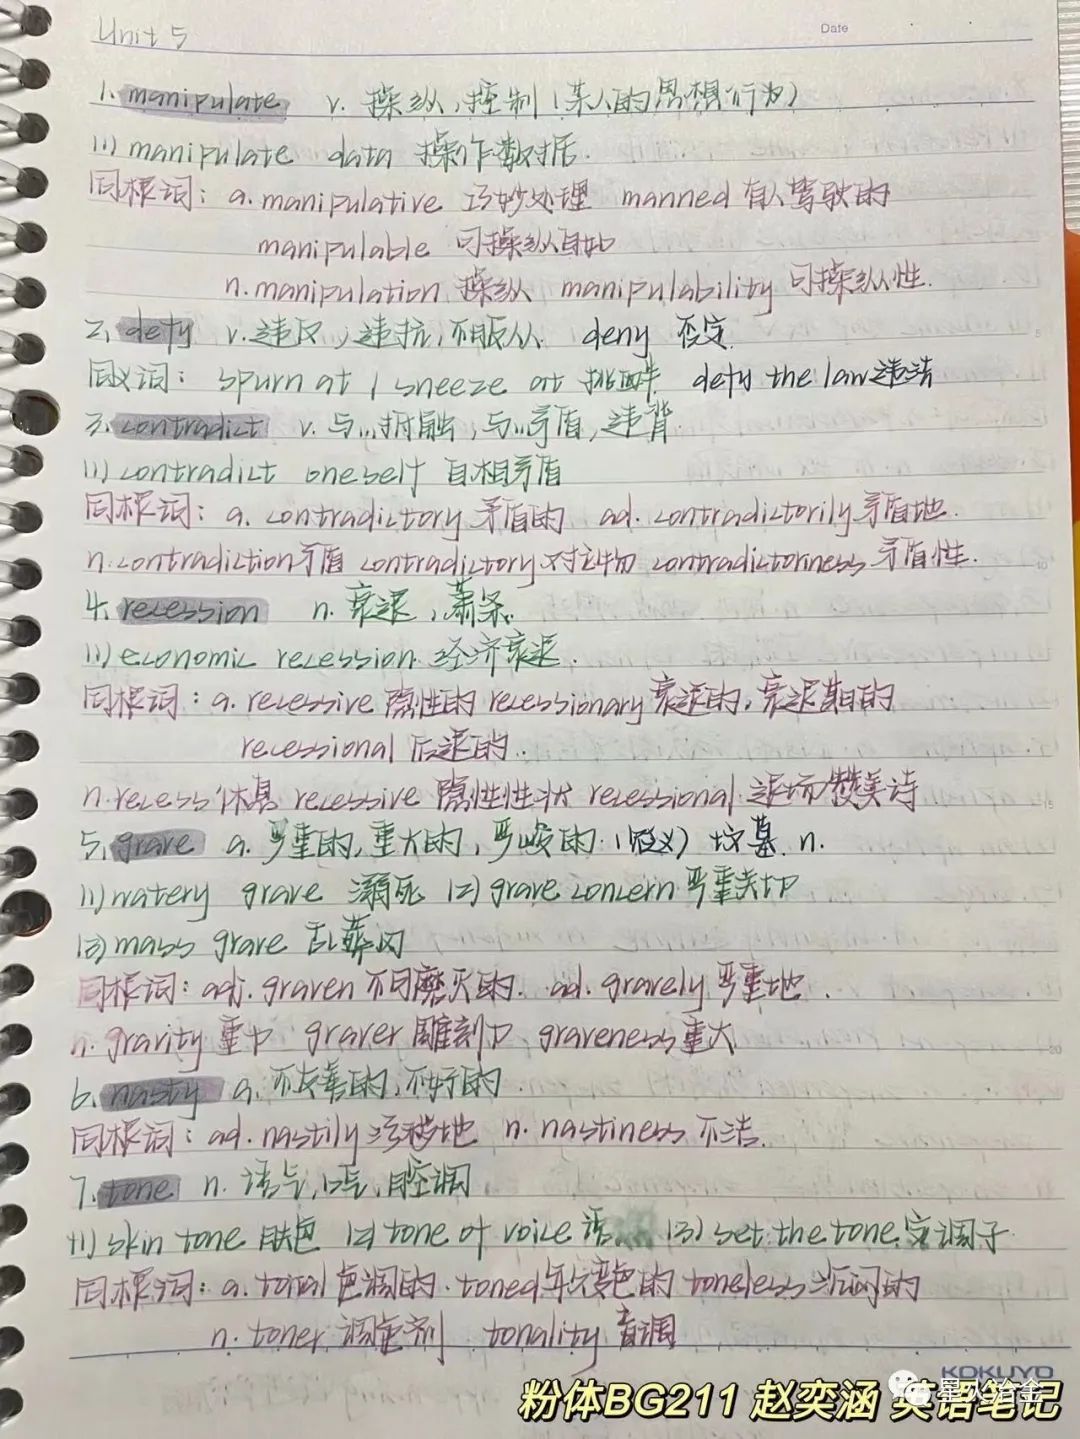 Unit 5
Date
1. manipulate v. 操纵,控制(某人的思想行为)
(1) manipulate data 操作数据.
同根词: a. manipulative 巧妙处理 manned 有人驾驶的
manipulable 可操纵的
n. manipulation 操纵 manipulability 可操纵性.
2. defy v. 违反,违抗,不服从 deny 否定
同义词: spurn at / sneeze at 挑衅 defy the law 违法
3. contradict v. 与…抵触,与…矛盾,违背
(1) contradict oneself 自相矛盾
同根词: a. contradictory 矛盾的 ad. contradictorily 矛盾地.
n. contradiction 矛盾 contradictory 对立物 contradictoriness 矛盾性.
4. recession n. 衰退,萧条.
(1) economic recession 经济衰退.
同根词: a. recessive 隐性的 recessionary 衰退的,衰退期的
recessional 后退的.
n. recess 休息 recessive 隐性性状 recessional 退场赞美诗
5. grave a. 严重的,重大的,严峻的. 坟墓. n.
(1) watery grave 溺死 (2) grave concern 严重关切
(3) mass grave 乱葬冈
同根词: adj. graven 不可磨灭的. ad. gravely 严重地.
n. gravity 重力 graver 雕刻刀 graveness 重大
6. nasty a. 不友善的,不好的.
同根词: ad. nastily 污秽地 n. nastiness 不洁.
7. tone n. 语气,口气,腔调
(1) skin tone 肤色 (2) tone of voice 语 (3) set the tone 定调子
同根词: a. tonal 色调的. toned 年久变色的 toneless 沉闷的
n. toner 调色剂 tonality 音调
KOKUYO
星火冶金
粉体BG211 赵奕涵 英语笔记